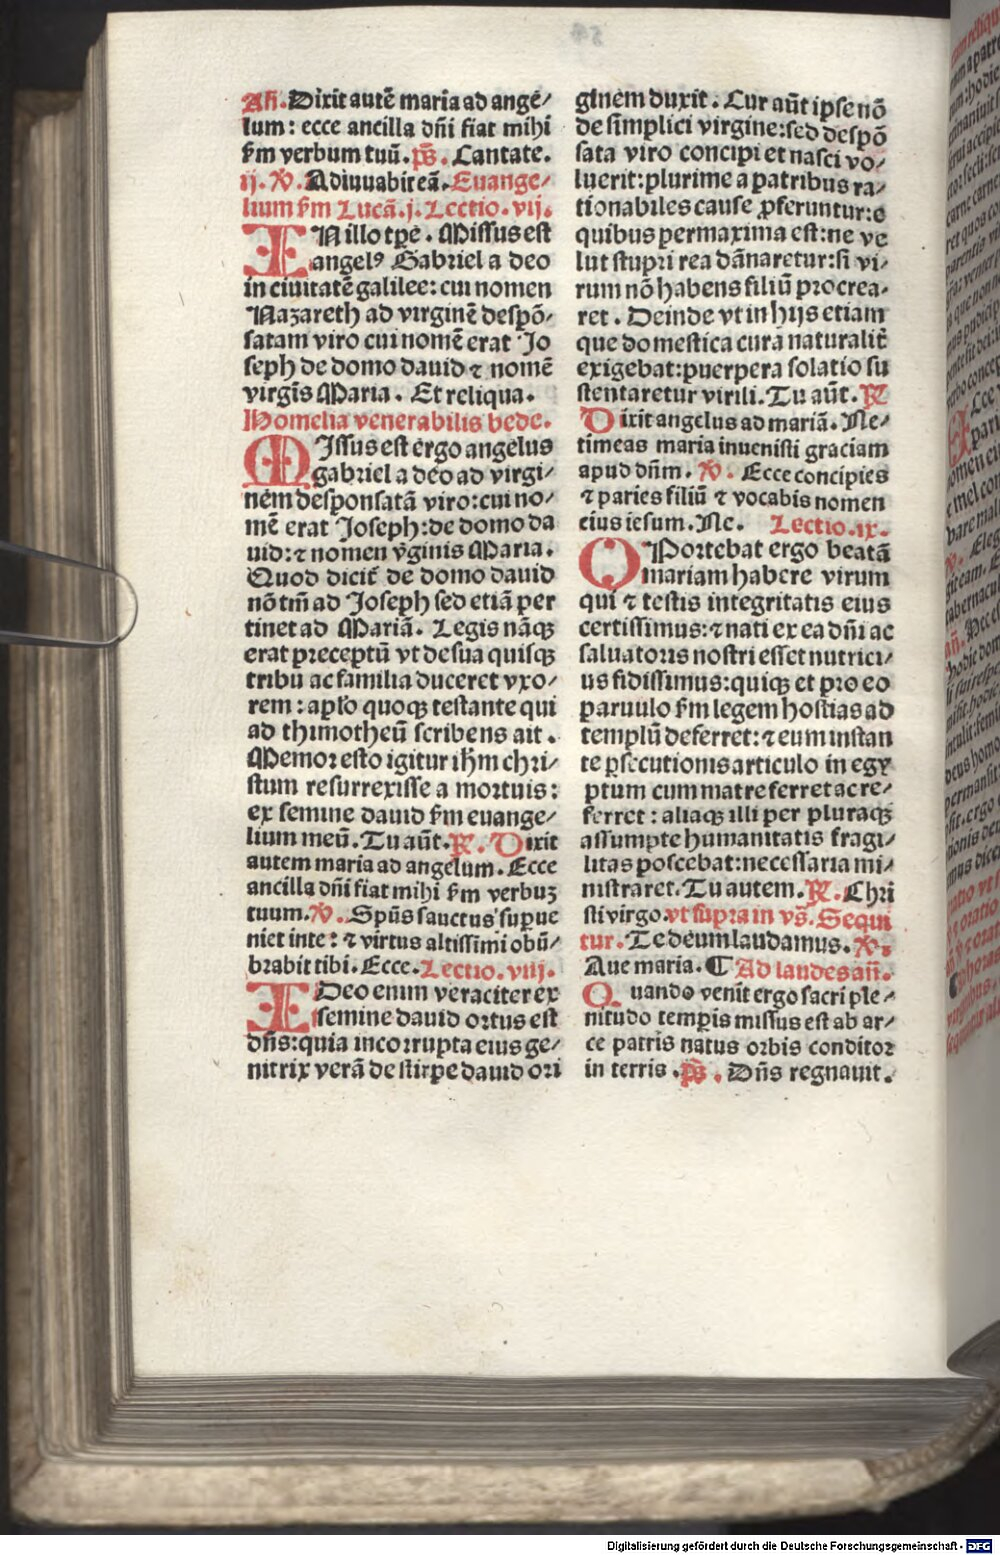 Añ. Dixit autē maria ad ange⸗
lum: ecce ancilla dñi fiat mihi
s̄m verbum tuū. p̄s. Cantate.
ij. v̄. Adiuuabit eā. Euange⸗
lium s̄m Lucā. j. Lectio. vij.
IN illo tp̄e. Missus est
angelꝰ Gabriel a deo
in ciuitatē galilee: cui nomen
Nazareth ad virginē despō⸗
satam viro cui nomē erat Jo
seph de domo dauid ⁊ nomē
virgīs Maria. Et reliqua.
Homelia venerabilis bede.
MIssus est ergo angelus
gabriel a deo ad virgi⸗
nem desponsatā viro: cui no⸗
mē erat Joseph: de domo da
uid: ⁊ nomen v̄ginis Maria.
Quod dicit̄ de domo dauid
nō tm̄ ad Joseph sed etiā per
tinet ad Mariā. Legis nāqꝫ
erat preceptū vt de sua quisqꝫ
tribu ac familia duceret vxo⸗
rem: ap̄lo quoqꝫ testante qui
ad thimotheū scribens ait.
Memor esto igitur ih̄m chri⸗
stum resurrexisse a mortuis:
ex semine dauid s̄m euange⸗
lium meū. Tu aūt. R̄. Dixit
autem maria ad angelum. Ecce
ancilla dñi fiat mihi s̄m verbuꝫ
tuum. v̄. Sp̄us sanctus supue
niet in te: ⁊ virtus altissimi obū⸗
brabit tibi. Ecce. Lectio. viij.
IDeo enim veraciter ex
semine dauid ortus est
dñs: quia incorrupta eius ge⸗
nitrix verā de stirpe dauid ori
ginem duxit. Cur aūt ipse nō
de simplici virgine: sed despō
sata viro concipi et nasci vo⸗
luerit: plurime a patribus ra⸗
tionabiles cause ꝓferuntur: e
quibus permaxima est: ne ve
lut stupri rea dānaretur: si vi⸗
rum nō habens filiū procrea⸗
ret. Deinde vt in hijs etiam
que domestica cura naturalit̄
exigebat: puerpera solatio su
stentaretur virili. Tu aūt. R̄
Dixit angelus ad mariā. Ne⸗
timeas maria inuenisti graciam
apud dñm. v̄. Ecce concipies
⁊ paries filiū ⁊ vocabis nomen
eius iesum. Ne. Lectio. ix.
OPortebat ergo beatā
mariam habere virum
qui ⁊ testis integritatis eius
certissimus: ⁊ nati ex ea dñi ac
saluatoris nostri esset nutrici⸗
us fidissimus: quiqꝫ et pro eo
paruulo s̄m legem hostias ad
templū deferret: ⁊ eum instan
te ꝑsecutionis articulo in egy
ptum cum matre ferret ac re⸗
ferret: aliaqꝫ illi per pluraqꝫ
assumpte humanitatis fragi⸗
litas poscebat: necessaria mi⸗
nistraret. Tu autem. R̄. Chri
sti virgo. vt supra in v̄s. Sequi
tur. Te deum laudamus. v̄.
Aue maria. ¶ Ad laudes añ.
Quando venit ergo sacri ple⸗
nitudo temp̄is missus est ab ar⸗
ce patris natus orbis conditor
in terris. p̄s. Dñs regnauit.
Digitalisierung gefördert durch die Deutsche Forschungsgemeinschaft - DFG